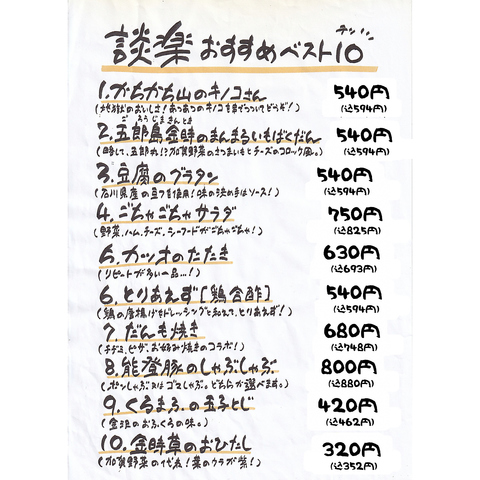 談楽おすすめベスト10
1.かちかち山のキノコさん 540円
(込594円)
ごろうじまきんとき
2.五郎島金時のまんまるいもばくだん 540円
(略して、五郎丸!?加賀野菜のさつまいもとチーズのコロッケ風。) (込594円)
3.豆腐のグラタン 540円
(石川県産の豆フを使用!味の決め手はソース!) (込594円)
4.ごちゃごちゃサラダ 750円
(野菜、ハム、チーズ、シーフードがごちゃごちゃ!) (込825円)
5.カツオのたたき 630円
(リピートが多い一品...!) (込693円)
6.とりあえず[鶏合酢] 540円
(鶏の唐揚げをドレッシングと和えて、とりあえず!) (込594円)
7.だんも焼き 680円
(チヂミ、ピザ、お好み焼きのコラボ!) (込748円)
8.能登豚のしゃぶしゃぶ 800円
(ポンしゃぶ又はゴマしゃぶ。どちらか選べます。) (込880円)
9.くるまふの玉子とじ 420円
(金沢のおふくろの味。) (込462円)
10.金時草のおひたし 320円
(加賀野菜の代表!葉のウラが紫!) (込352円)